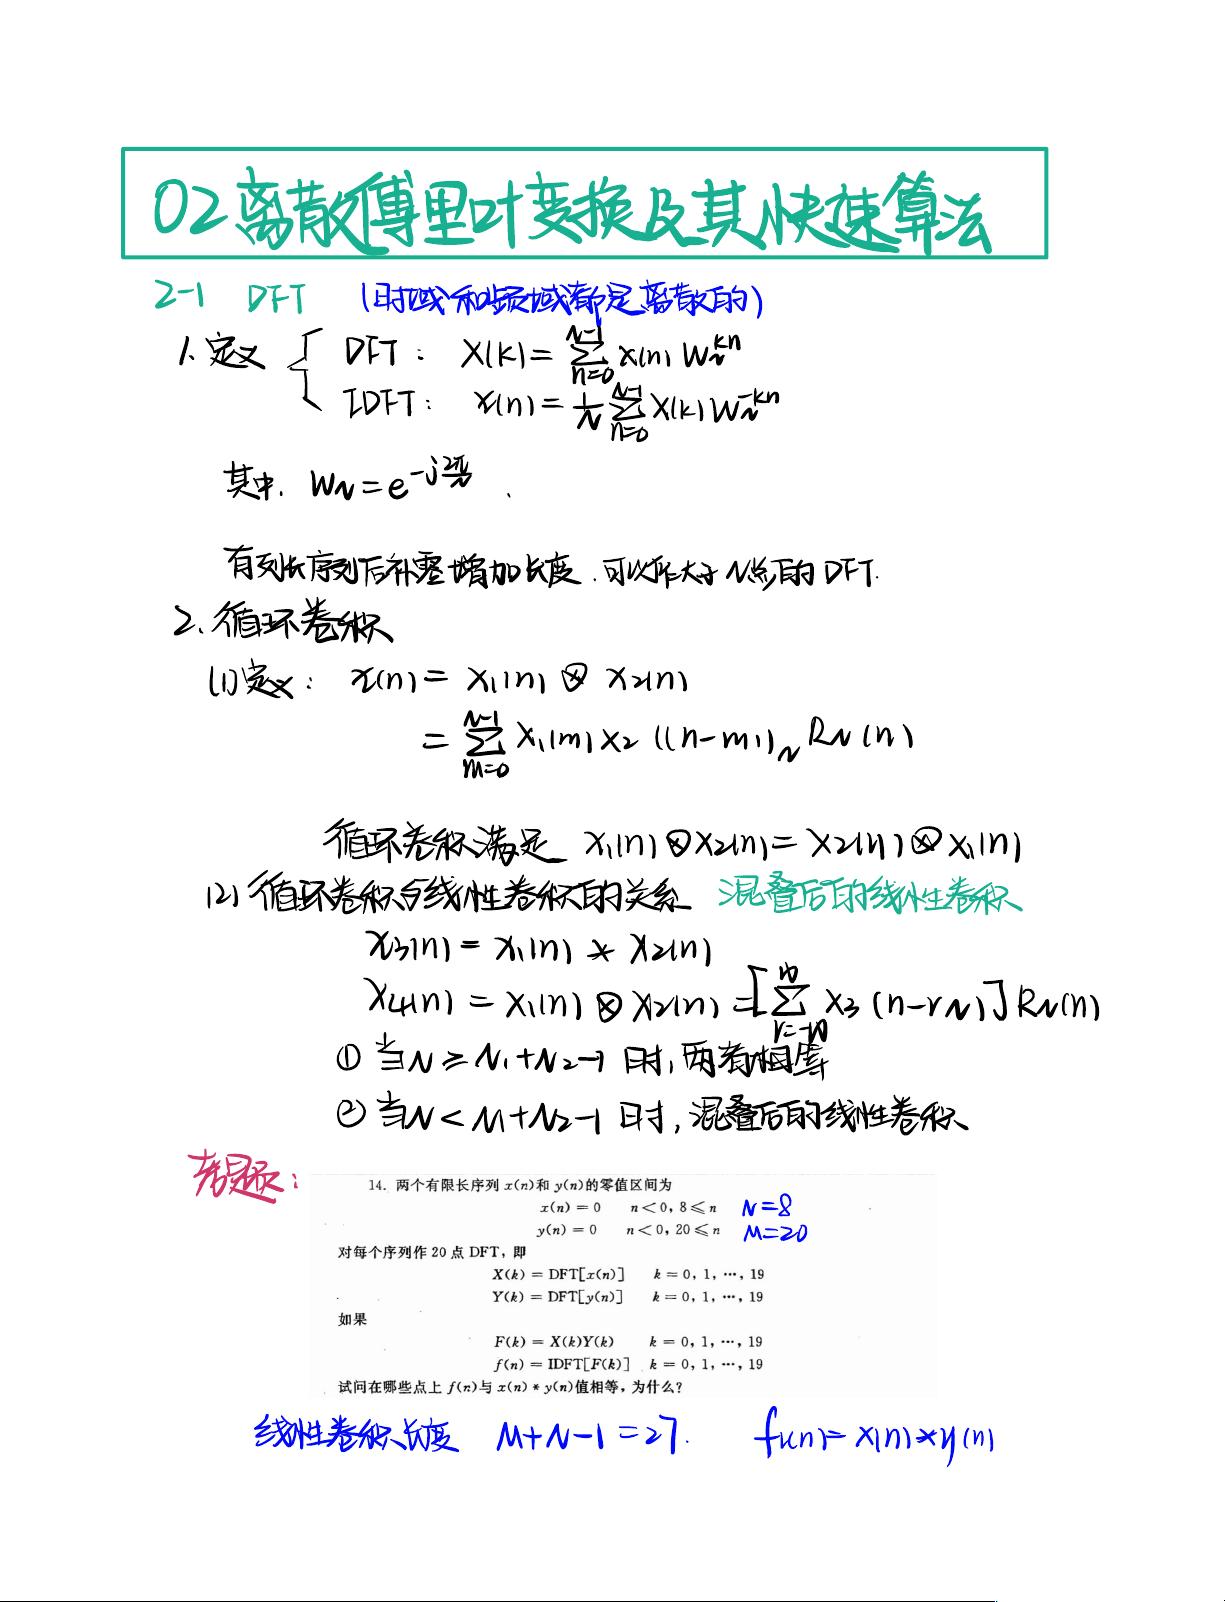 02 离散傅里叶变换及其快速算法
2-1 DFT (时域和频域都是离散的)
1. 定义 { DFT: X(k)= \sum_{n=0}^{N-1} x(n) W_N^{kn}
IDFT: x(n)= \frac{1}{N} \sum_{n=0}^{N-1} X(k) W_N^{-kn}
其中, W_N = e^{-j\frac{2\pi}{N}}.
有列长序列后补零增加长度,可以作大于N点的DFT.
2. 循环卷积
(1) 定义: x(n) = x_1(n) ⊗ x_2(n)
= \sum_{m=0}^{N-1} x_1(m) x_2((n-m))_N R_N(n)
循环卷积满足 x_1(n)⊗x_2(n)=x_2(n)⊗x_1(n)
(2) 循环卷积与线性卷积的关系 混叠后的线性卷积
x_3(n) = x_1(n) * x_2(n)
x_4(n) = x_1(n) ⊗ x_2(n) = [\sum_{r=-∞}^{∞} x_3(n-rN)] R_N(n)
① 当N ≥ N_1+N_2-1 时, 两者相等
② 当N < N_1+N_2-1 时, 混叠后的线性卷积
考题:
14. 两个有限长序列 x(n)和 y(n)的零值区间为
x(n) = 0 n<0, 8≤n N=8
y(n) = 0 n<0, 20≤n M=20
对每个序列作 20 点 DFT, 即
X(k) = DFT[x(n)] k = 0, 1, ⋯, 19
Y(k) = DFT[y(n)] k = 0, 1, ⋯, 19
如果
F(k) = X(k)Y(k) k = 0, 1, ⋯, 19
f(n) = IDFT[F(k)] k = 0, 1, ⋯, 19
试问在哪些点上 f(n)与 x(n) * y(n)值相等, 为什么?
线性卷积长度 M+N-1=27. f_l(n)= x(n)*y(n)